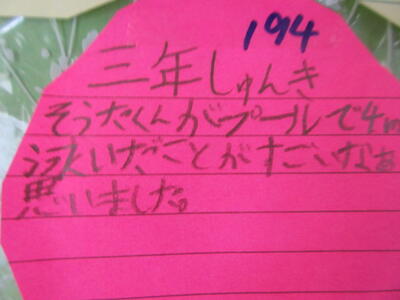 194
三年しゅんき
そうたくんがプールで4m
泳いだことがすごいなぁ
思いました。